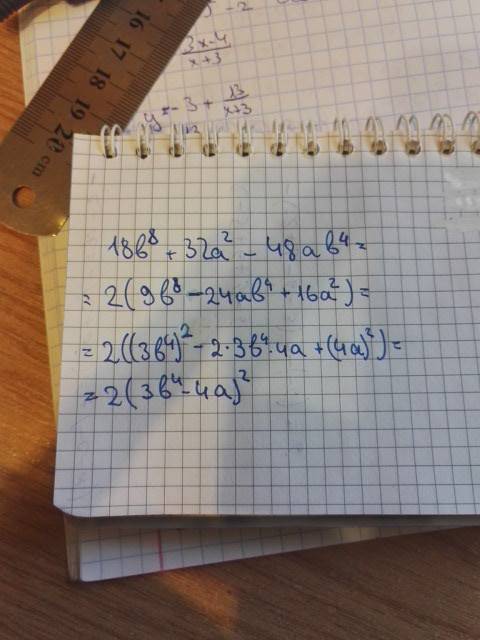 16 17 18 19 20 cm
3x-4
x+3
y=-3+
13
x+3
18в⁸+32a²-48aв⁴=
=2(9в⁸-24aв⁴+16a²)=
=2((3в⁴)²-2·3в⁴·4a+(4a)²)=
=2(3в⁴-4a)²